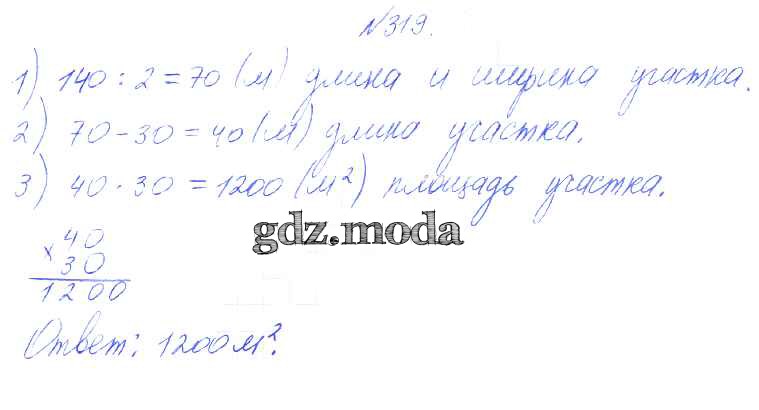 №319.
1) 140 : 2 = 70 (м) длина и ширина участка.
2) 70 - 30 = 40 (м) длина участка.
3) 40 · 30 = 1200 (м²) площадь участка.
gdz.moda
× 40
30
1200
Ответ: 1200 м².